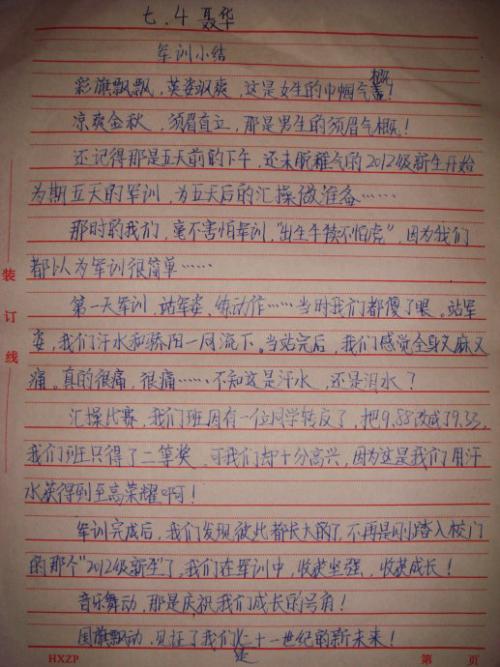 七.4 聂华
军训小结
彩旗飘飘，英姿飒爽，这是女生的巾帼气概！
凉爽金秋，须眉直立，那是男生的须眉气概！
还记得那是五天前的下午，还未脱稚气的2012级新生开始
为期五天的军训，为五天后的汇操做准备……
那时的我们，毫不害怕军训，"出生牛犊不怕虎"，因为我们
都以为军训很简单……
第一天军训，站军姿，练动作……当时我们都傻了眼。站军
姿，我们汗水和骄阳一同流下。当站完后，我们感觉全身又麻又
痛。真的很痛，很痛……不知这是汗水，还是泪水？
汇操比赛，我们班因有一位同学转反了，把9.88改成了9.33，
我们班只得了二等奖，可我们却十分高兴，因为这是我们用汗
水获得到至高荣耀啊！
军训完成后，我们发现彼此都长大的了，不再是刚踏入校门
的那个"2012级新生"了，我们在军训中，收获坚强，收获成长！
音乐舞动，那是庆祝我们成长的号角！
国旗飘动，见证了我们这二十一世纪的新未来！
装
订
线
HXZP
第 页